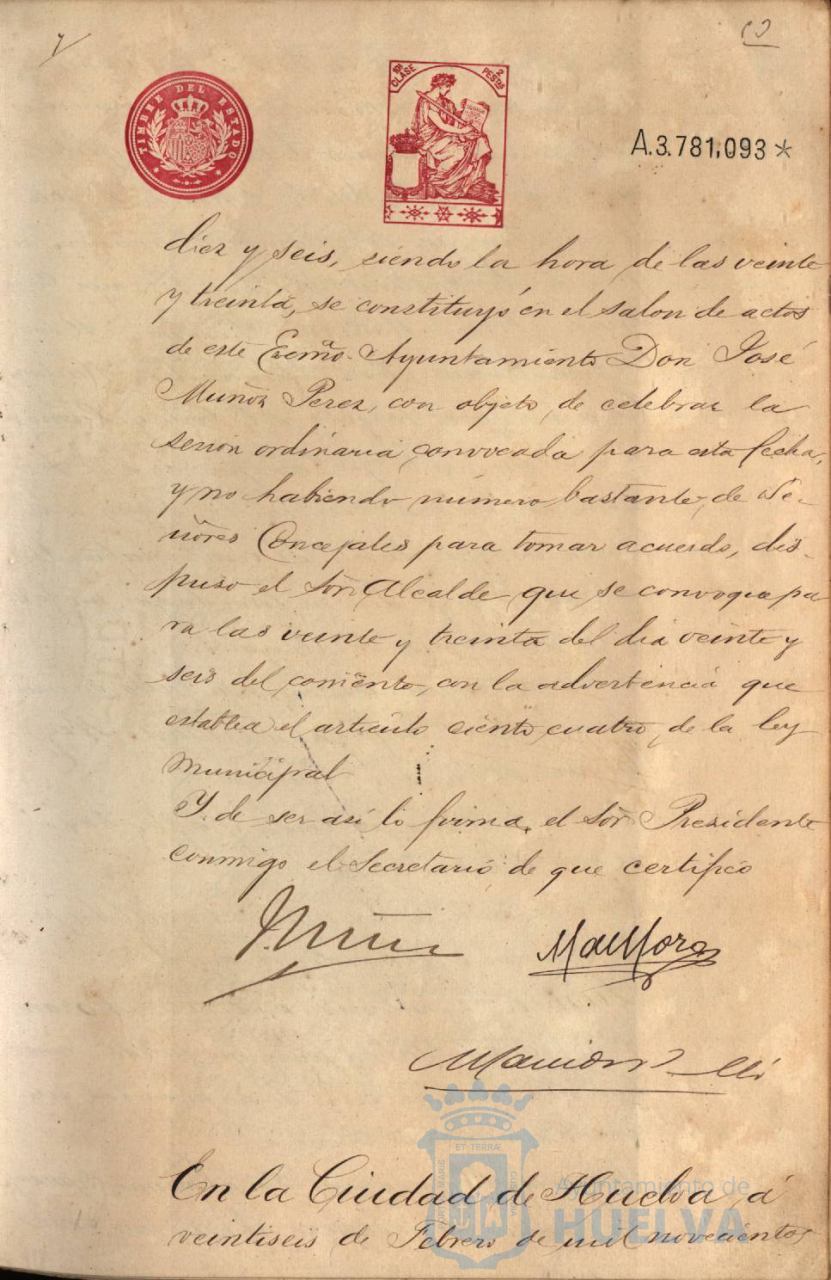 TIMBRE DEL ESTADO
10ª CLASE
2 PESETAS
A.3.781,093 *
diez y seis, siendo la hora de las veinte
y treinta, se constituyó en el salon de actos
de este Excmo. Ayuntamiento Don José
Muñoz Perez, con objeto de celebrar la
sesion ordinaria convocada para esta fecha,
y no habiendo número bastante de Se-
ñores Concejales para tomar acuerdo, dis-
puso el Sor. Alcalde que se convoque pa
ra las veinte y treinta del dia veinte y
seis del corriente, con la advertencia que
establece el articulo ciento cuatro de la ley
Municipal
Y de ser asi lo firma, el Sor. Presidente
conmigo el Secretario, de que certifico
ET TERRÆ
En la Ciudad de Huelva á
veintiseis de Febrero de mil novecientos
Ayuntamiento de
HUELVA